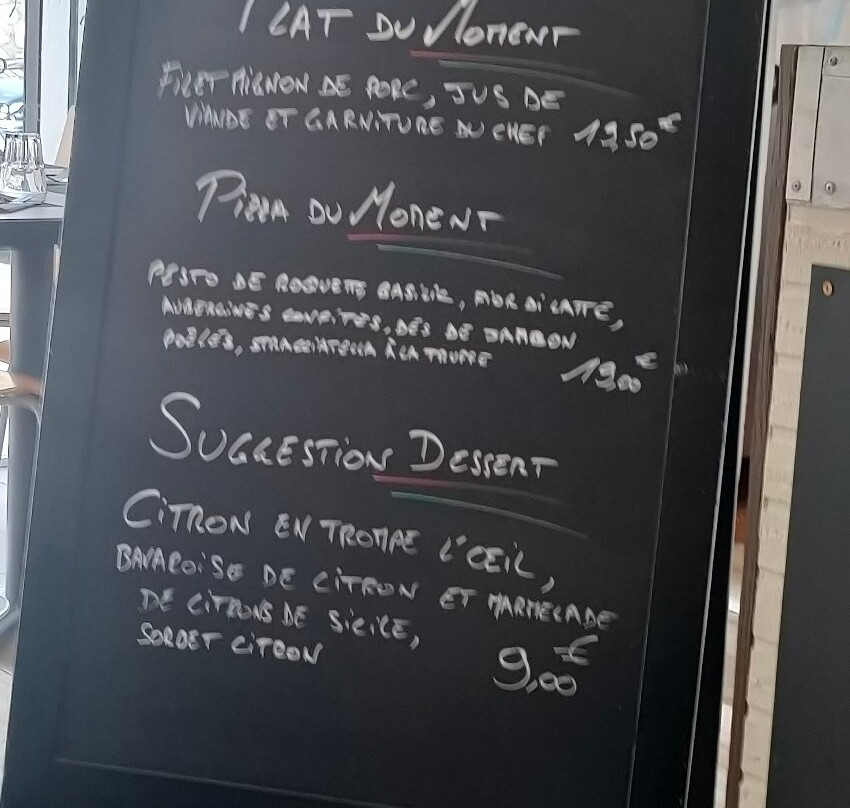 PLAT DU MOMENT
FILET MIGNON DE PORC, JUS DE
VIANDE ET GARNITURE DU CHEF 19,50€
PIZZA DU MOMENT
PESTO DE ROQUETTE BASILIC, FIOR DI LATTE,
AUBERGINES CONFITES, DÉS DE JAMBON
POÊLÉS, STRACCIATELLA À LA TRUFFE
19,00€
SUGGESTION DESSERT
CITRON EN TROMPE L'ŒIL,
BAVAROISE DE CITRON ET MARMELADE
DE CITRONS DE SICILE,
SORBET CITRON
9,00€